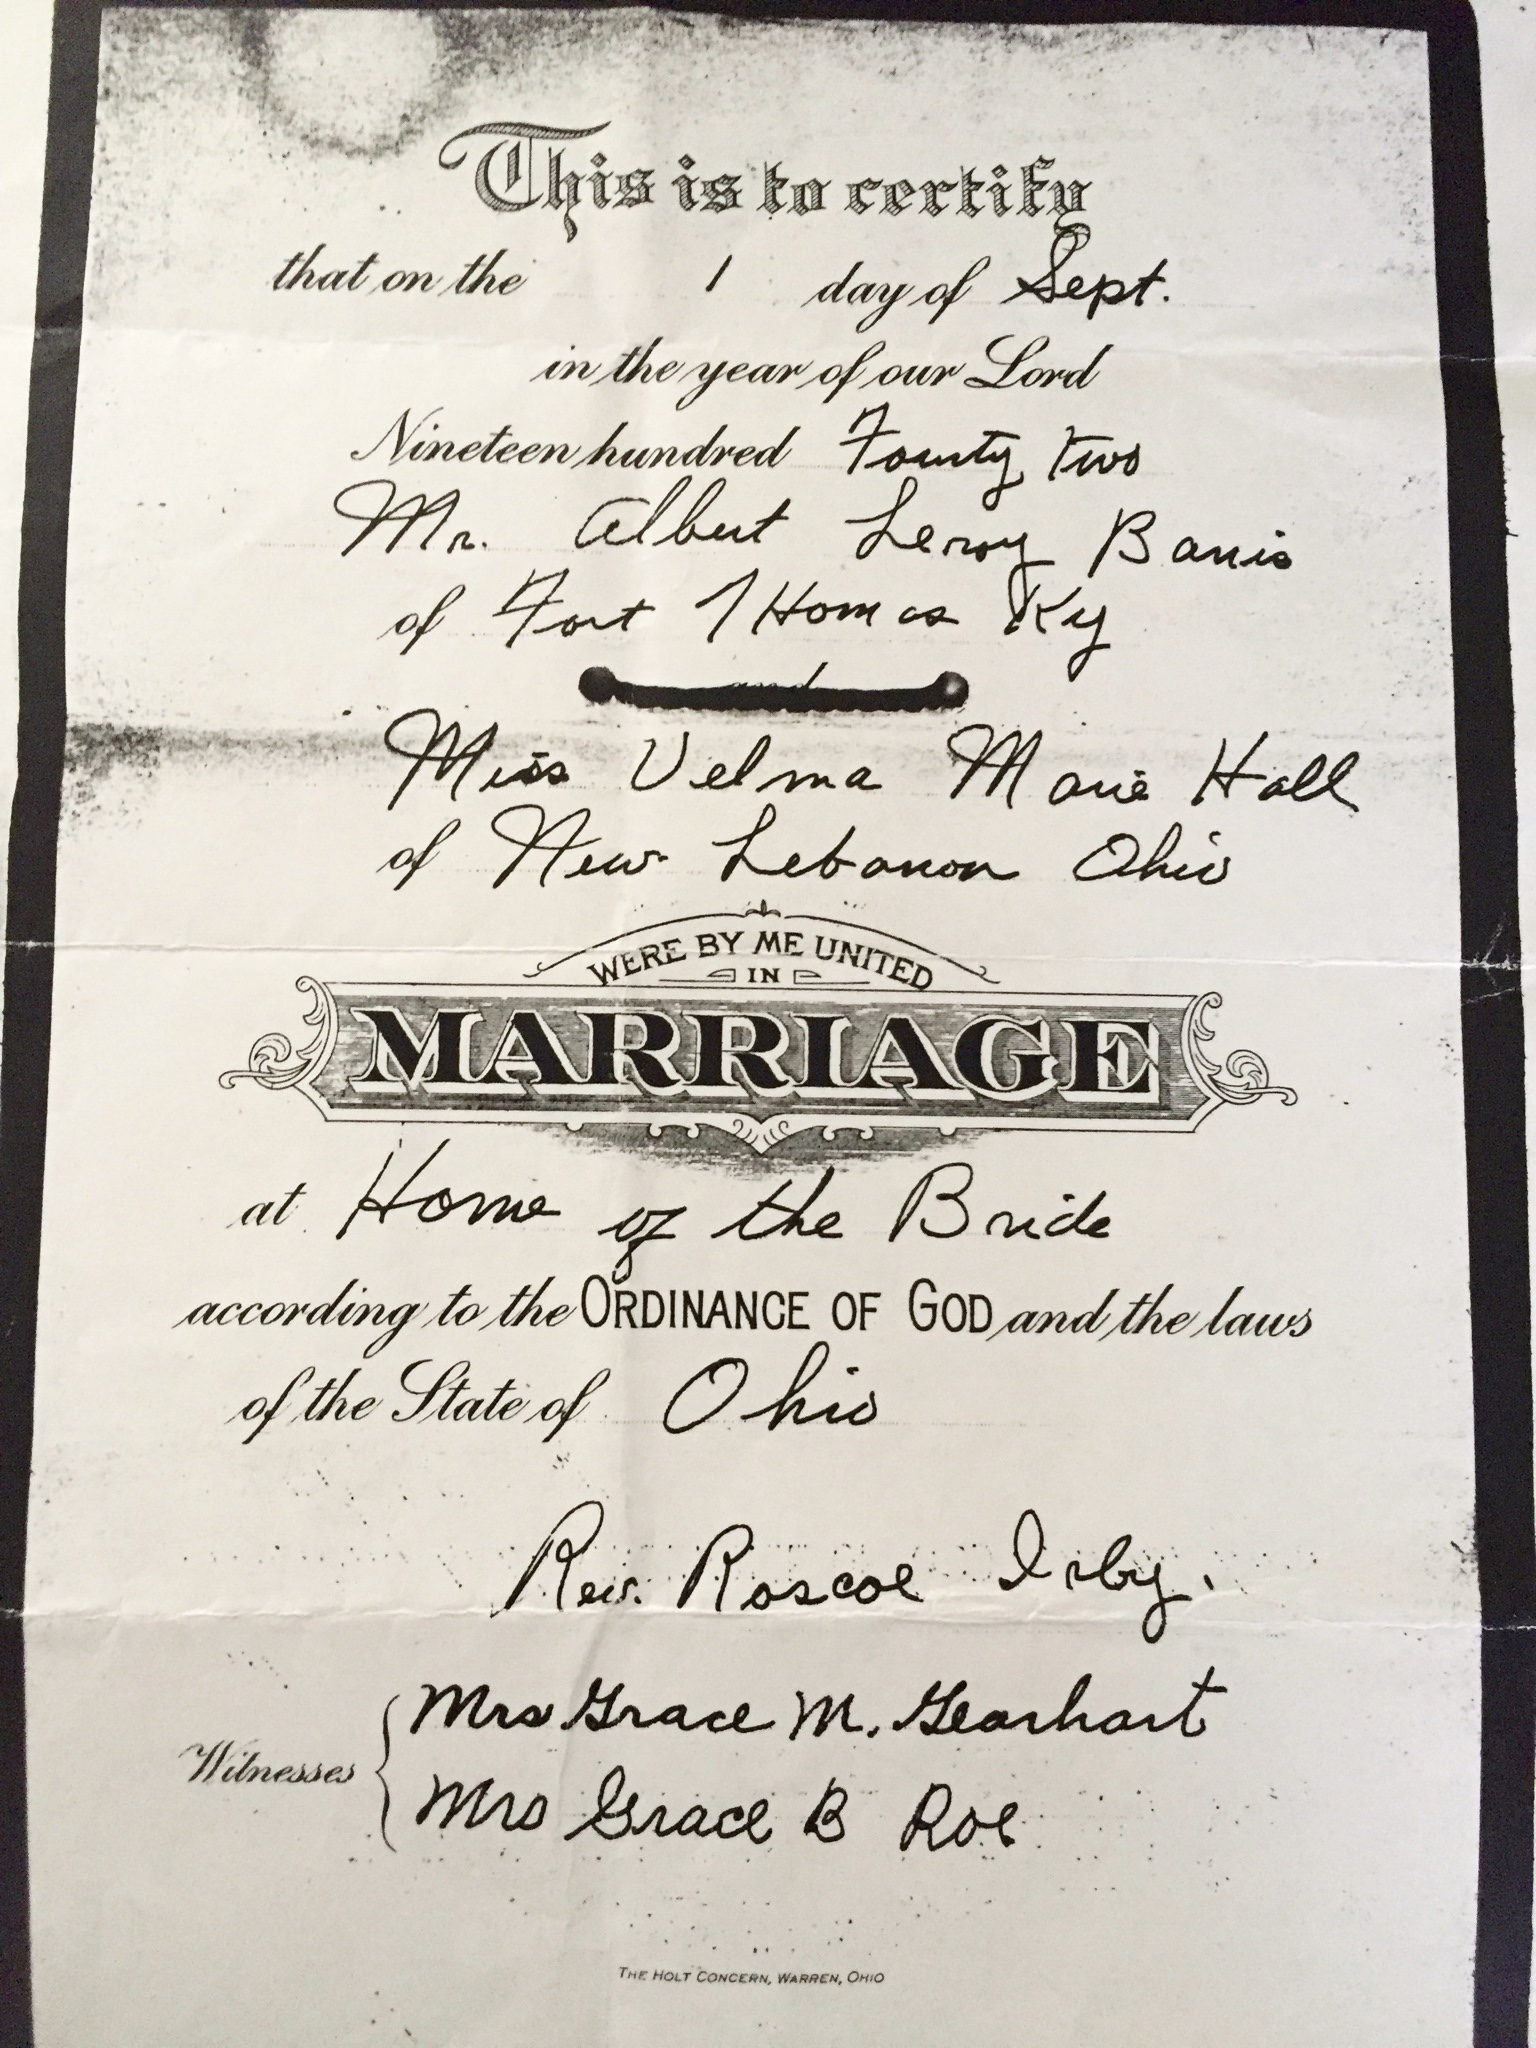 This is to certify
that on the 1 day of Sept.
in the year of our Lord
Nineteen hundred Fourty Two
Mr. Albert Leroy
of Fort THomas Ky
and
Miss Velma Marie Hall
of New Lebanon Ohio
WERE BY ME UNITED
IN
MARRIAGE
at Home of the Bride
according to the ORDINANCE OF GOD and the laws
of the State of Ohio
Rev. Roscoe Irby.
Mrs Grace M. Gearhart
Witnesses
Mrs Grace B Roe
THE HOLT CONCERN, WARREN, OHIO